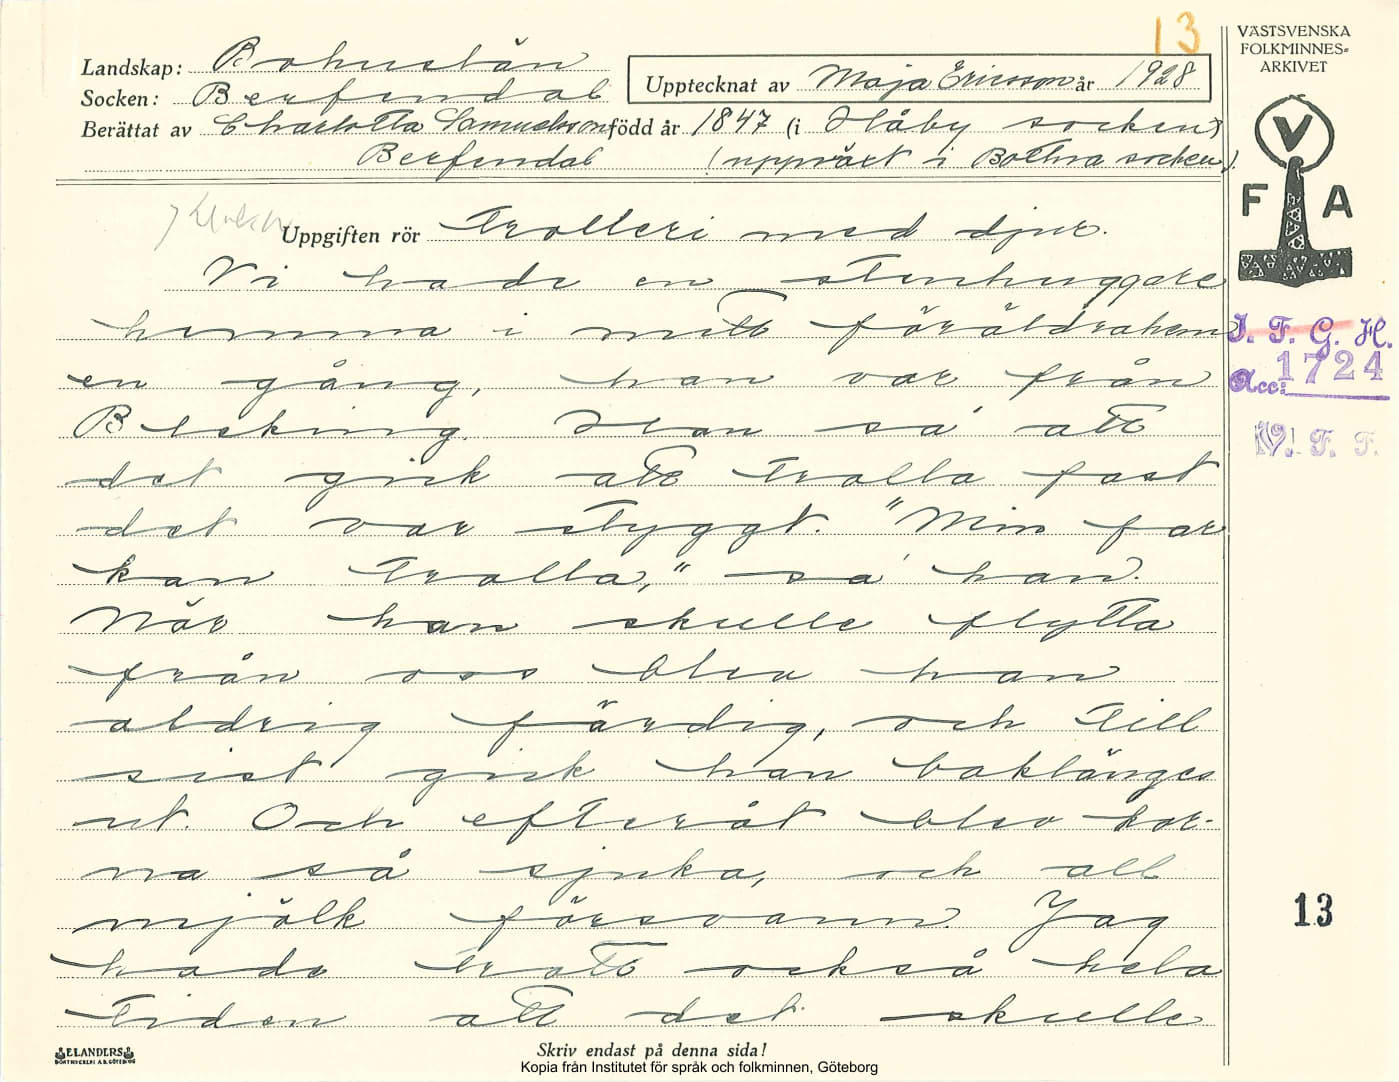 13
VÄSTSVENSKA
FOLKMINNES=
ARKIVET
Landskap: Bohuslän
Upptecknat av Maja Ericsson år 1928
Socken: Berfendal
Berättat av Charlotta Samuelsson född år 1847 (i Håby socken)
Berfendal (uppväxt i Bottna socken).
V
F A
Uppgiften rör Trolleri med djur.
Vi hade en stenhuggare
hemma i mitt föräldrahem
en gång, han var från
Bleking. Han sa' att
det gick att trolla fast
det var styggt. "Min far
kan trolla," sa' han.
När han skulle flytta
från oss blev han
aldrig färdig, och till
sist gick han baklänges
ut. Och efteråt blev kor-
na så sjuka, och all
mjölk försvann. Jag
hade trott också hela
tiden att det skulle
I. F. G. H.
Acc: 1724
V. F. F.
13
ELANDERS
Skriv endast på denna sida!
Kopia från Institutet för språk och folkminnen, Göteborg